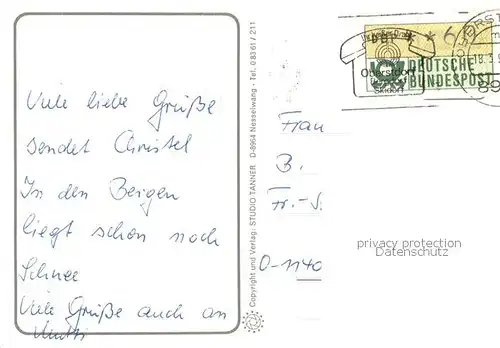 Viele liebe Grüße
sendet Christel
In den Bergen
liegt schon noch
Schnee
Viele Grüße auch an
Mutti
Copyright und Verlag: STUDIO TANNER D-8964 Nesselwang - Tel. 08361/211
DBP
Oberstdorf
DEUTSCHE
BUNDESPOST
18.3.9
89
Frau
B.
Fr.-S
O-1140
privacy protection
Datenschutz